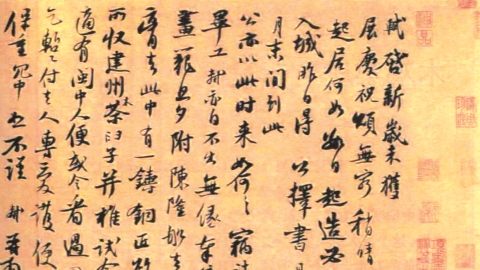 軾啓新歲未獲
展慶祝頌無窮稍晴
起居何如數日起造必
入城昨日得公擇書
月末間到此
公亦以此時來如何々竊計
畢工軾亦自不出無緣奉
畫籠旦夕附陳隆船去
膏去此中有一鑄銅匠欲
所收建州木茶臼子并椎試令
適有閩中人便或令看過
乞暫付去人專愛護便
保重冗中恕不謹軾再